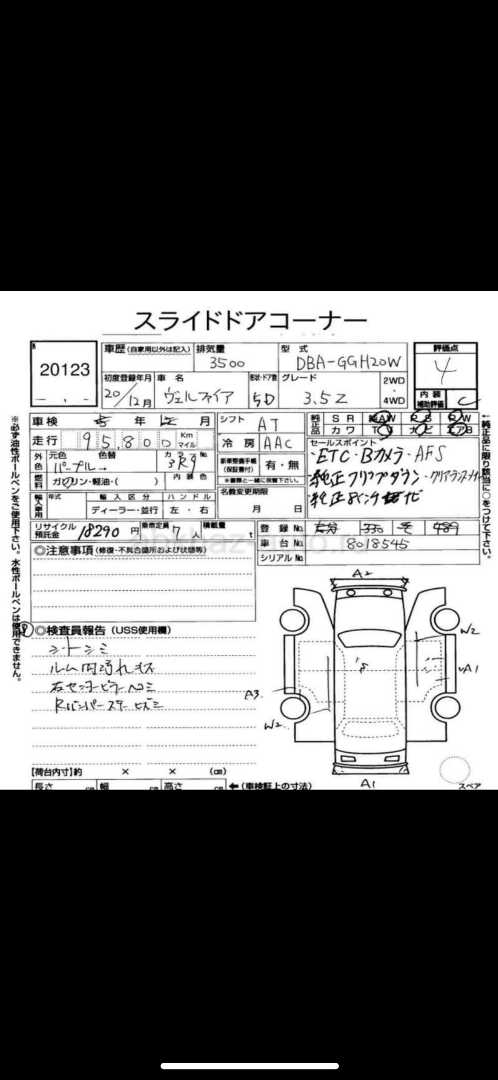 スライドドアコーナー
20123
車歴 (自家用以外は記入) 排気量 3500 型式 DBA-GGH20W
初度登録年月 20/12月 車名 ヴェルファイア 形状・ドア数 5D グレード 3.5Z 2WD・4WD
評価点 4
内装補助評価 C
車検 年 月
走行 95,800 Km マイル
シフト AT
冷房 AAC
外色 元色 パープル 色替 カラーNo. 3R9
燃料 ガソリン・軽油・( ) 内装色
輸入車用 年式 輸入区分 ディーラー・並行 ハンドル 左・右
新車整備手帳(保証書付) 有・無
※書類と一緒に保管下さい。
名義変更期限 月 日
純正品 SR AW PS PW
カワ TV ナビ エアB
セールスポイント
・ETC・Bカメラ・AFS
純正フリップダウン・クリアランスソナー
純正8インチナビ
リサイクル預託金 18290 円 乗車定員 7人 積載量 t
登録No. 330 489
車台No. 8018545
シリアルNo.
◎注意事項(修復・不具合箇所および状態等)
◎検査員報告 (USS使用欄)
シートシミ
ルーム内汚れキズ
右センターピラー凹ミ
Rバンパーステーヒズミ
A2
W2
A1
A3
W2
A1
【荷台内寸】約 × × (cm)
長さ cm 幅 cm 高さ cm ←(車検証上の寸法)
スペア
※必ず油性ボールペンをご使用下さい。水性ボールペンは使用できません。
←純正品に限り該当に○をつけて下さい。